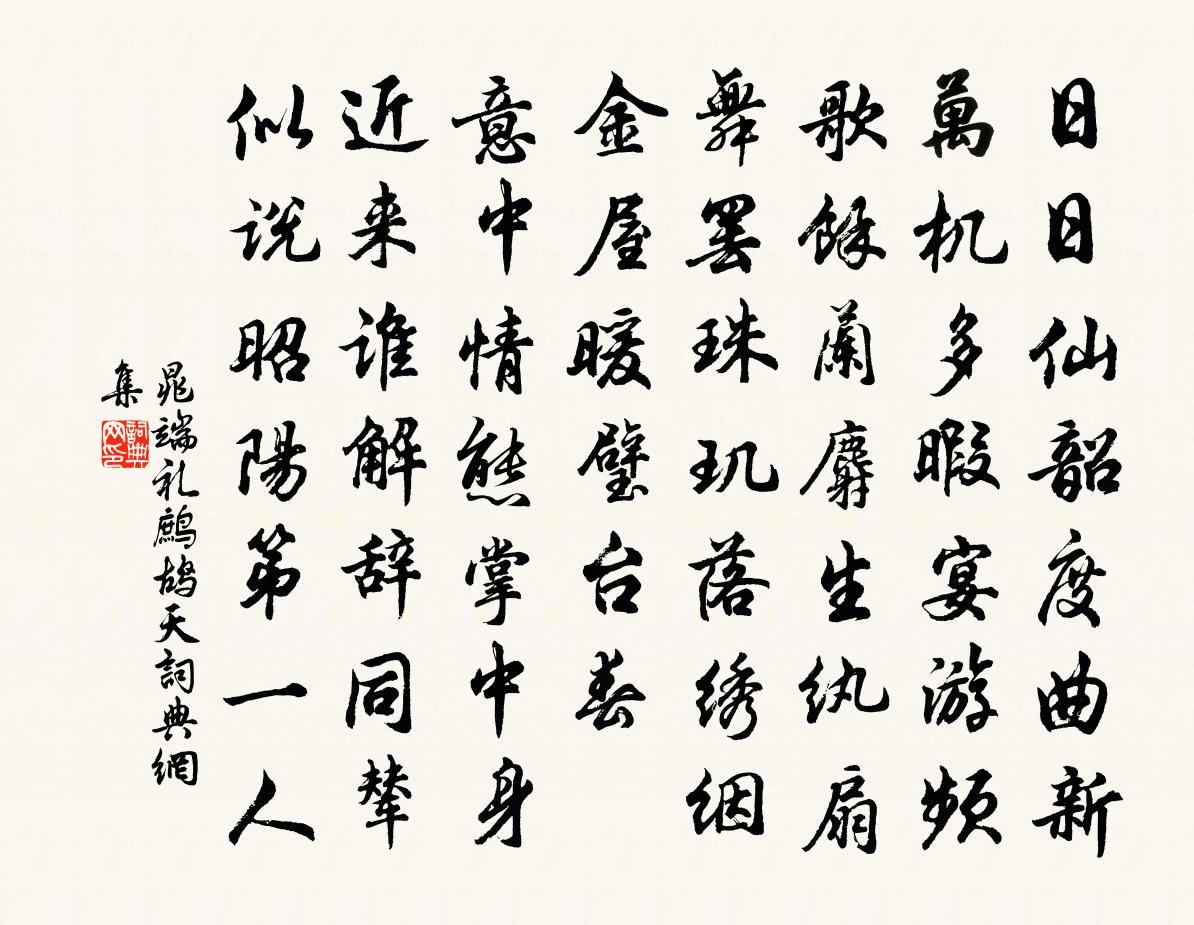 日日仙韶度曲新
萬机多暇宴游频
歌餘蘭麝生纨扇
舞罢珠玑落绣絪
金屋暖璧台春
意中情態掌中身
近来谁解辞同辇
似说昭陽第一人
晁端礼鷓鸪天詞典網
集
詞典网印